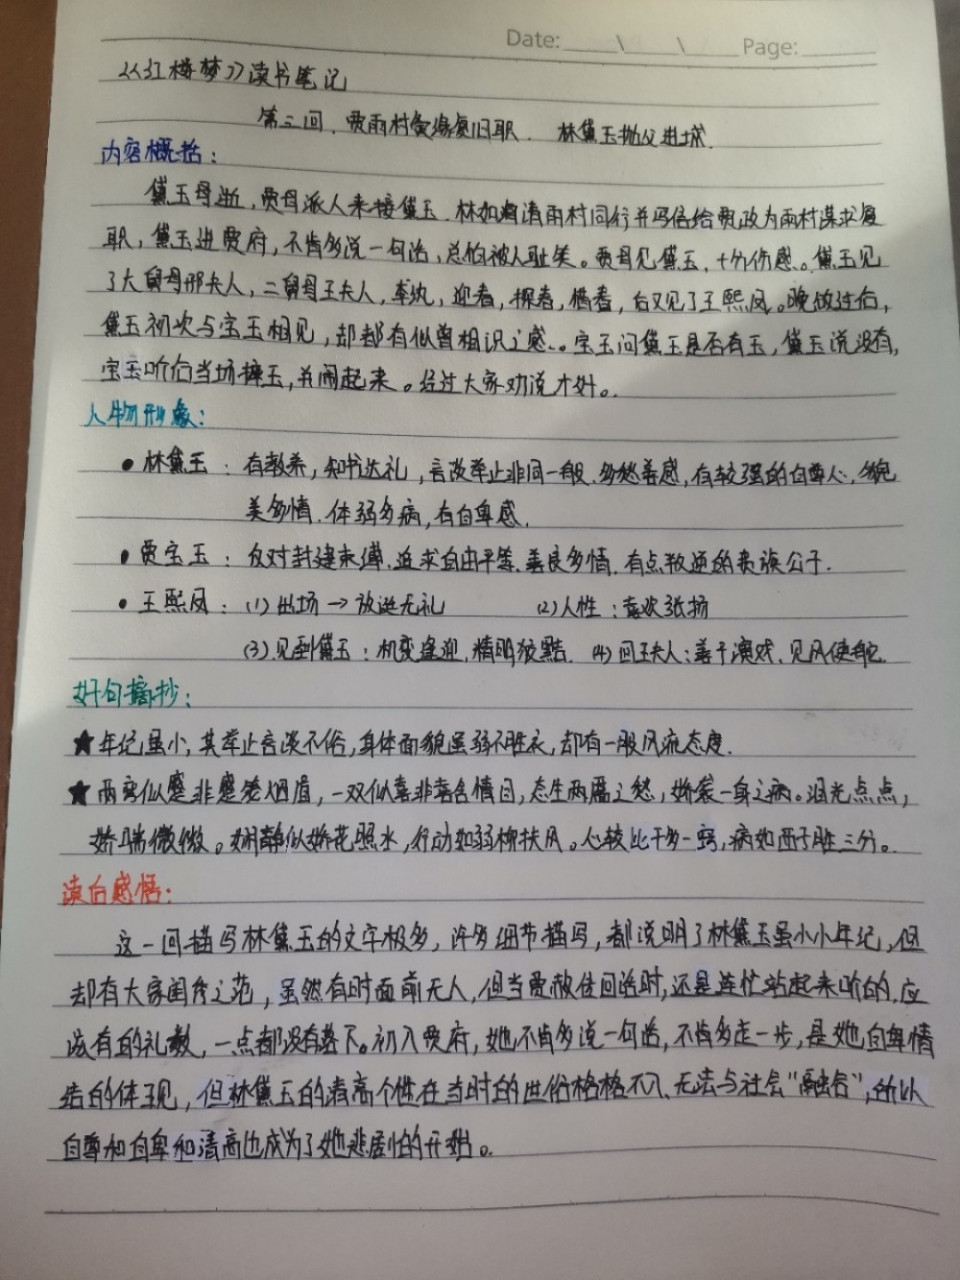 Date: \ \ Page:
《红楼梦》读书笔记
第三回. 贾雨村夤缘复旧职. 林黛玉抛父进城.
内容概括:
黛玉母逝,贾母派人来接黛玉.林如海请雨村同行并写信给贾政为雨村谋求复
职,黛玉进贾府,不肯多说一句话,总怕被人耻笑。贾母见黛玉,十分伤感。黛玉见
了大舅母邢夫人,二舅母王夫人,李纨,迎春,探春,惜春,后又见了王熙凤。晚饭过后,
黛玉初次与宝玉相见,却都有似曾相识之感。宝玉问黛玉是否有玉,黛玉说没有,
宝玉听后当场摔玉,并闹起来。经过大家劝说才好。
人物形象:
• 林黛玉: 有教养,知书达礼,言谈举止非同一般.多愁善感,有较强的自尊心.貌
美多情.体弱多病,有自卑感.
• 贾宝玉: 反对封建束缚.追求自由平等.善良多情.有点叛逆的贵族公子.
• 王熙凤: (1)出场→放诞无礼 (2)人性:喜欢张扬
(3)见到黛玉:机变逢迎,精明狡黠. (4)回王夫人:善于演戏.见风使舵.
好句摘抄:
★年纪虽小,其举止言谈不俗,身体面貌虽弱不胜衣,却有一股风流态度.
★两弯似蹙非蹙笼烟眉,一双似喜非喜含情目,态生两靥之愁,娇袭一身之病。泪光点点,
娇喘微微。娴静似娇花照水,行动如弱柳扶风。心较比干多一窍,病如西子胜三分。
读后感悟:
这一回描写林黛玉的文字极多,许多细节描写,都说明了林黛玉虽小小年纪,但
却有大家闺秀之范,虽然有时面前无人,但当贾赦使回话时,还是连忙站起来听的.应
该有的礼数,一点都没有落下。初入贾府,她不肯多说一句话,不肯多走一步,是她自卑情
结的体现,但林黛玉的清高个性在当时的世俗格格不入、无法与社会“融合”,所以
自尊和自卑和清高也成为了她悲剧性的开始。